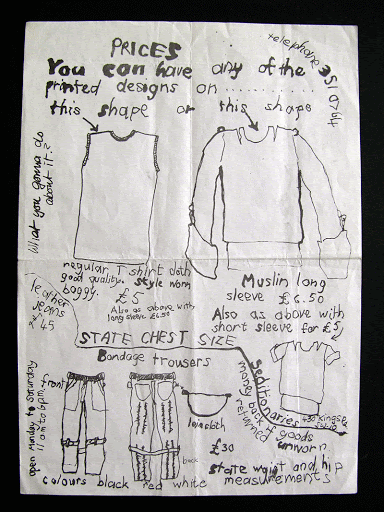 PRICES
telephone 351 0764
You can have any of the
printed designs on ............
this shape or this shape
What you gonna do
about it?
regular T shirt cloth
good quality. style worn
baggy.
£5
Also as above with
long sleeve £6.50
Muslin long
sleeve £6.50
Also as above with
short sleeve for £5
leather
jeans
£45
STATE CHEST SIZE
Bondage trousers
front
back
loincloth
£30
Seditionaries
430 Kings Rd
money back if goods
returned unworn
state waist and hip
measurements
open Monday to Saturday
colours black red white